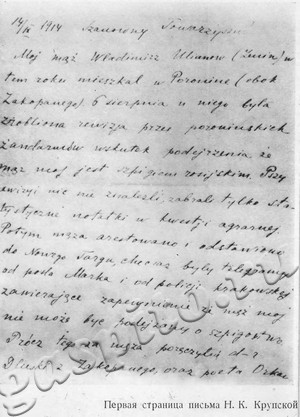 14/IX 1914 Szanowny Towarzyszu!
Mój mąż Władimir Uljanow (Lenin) w
tem roku mieszkał w Poroninie (obok
Zakopanego) 6 sierpnia u niego była
zrobliona rewizja przez poronińskich
żandarmów wskutek podejrzenia, że
mąż mój jest szpigiem rosijskim. Przy
rewizyi nic nie znależli, zabrali tylko sta-
tystyczne notatki w kwestji agrarnej.
Potym męża aresztowano i odstawiono
do Nowego Targu, chociaż były telegramy
od posła Marka i od policji krakowskiej
zawierające zapewnienie że mąż mój
nie może być podejrzany o szpigostwo
Prócz tego za męża poręczyli d-r
Dłuski z Zakopanego, oraz poeta Orkan
Первая страница письма Н. К. Крупской